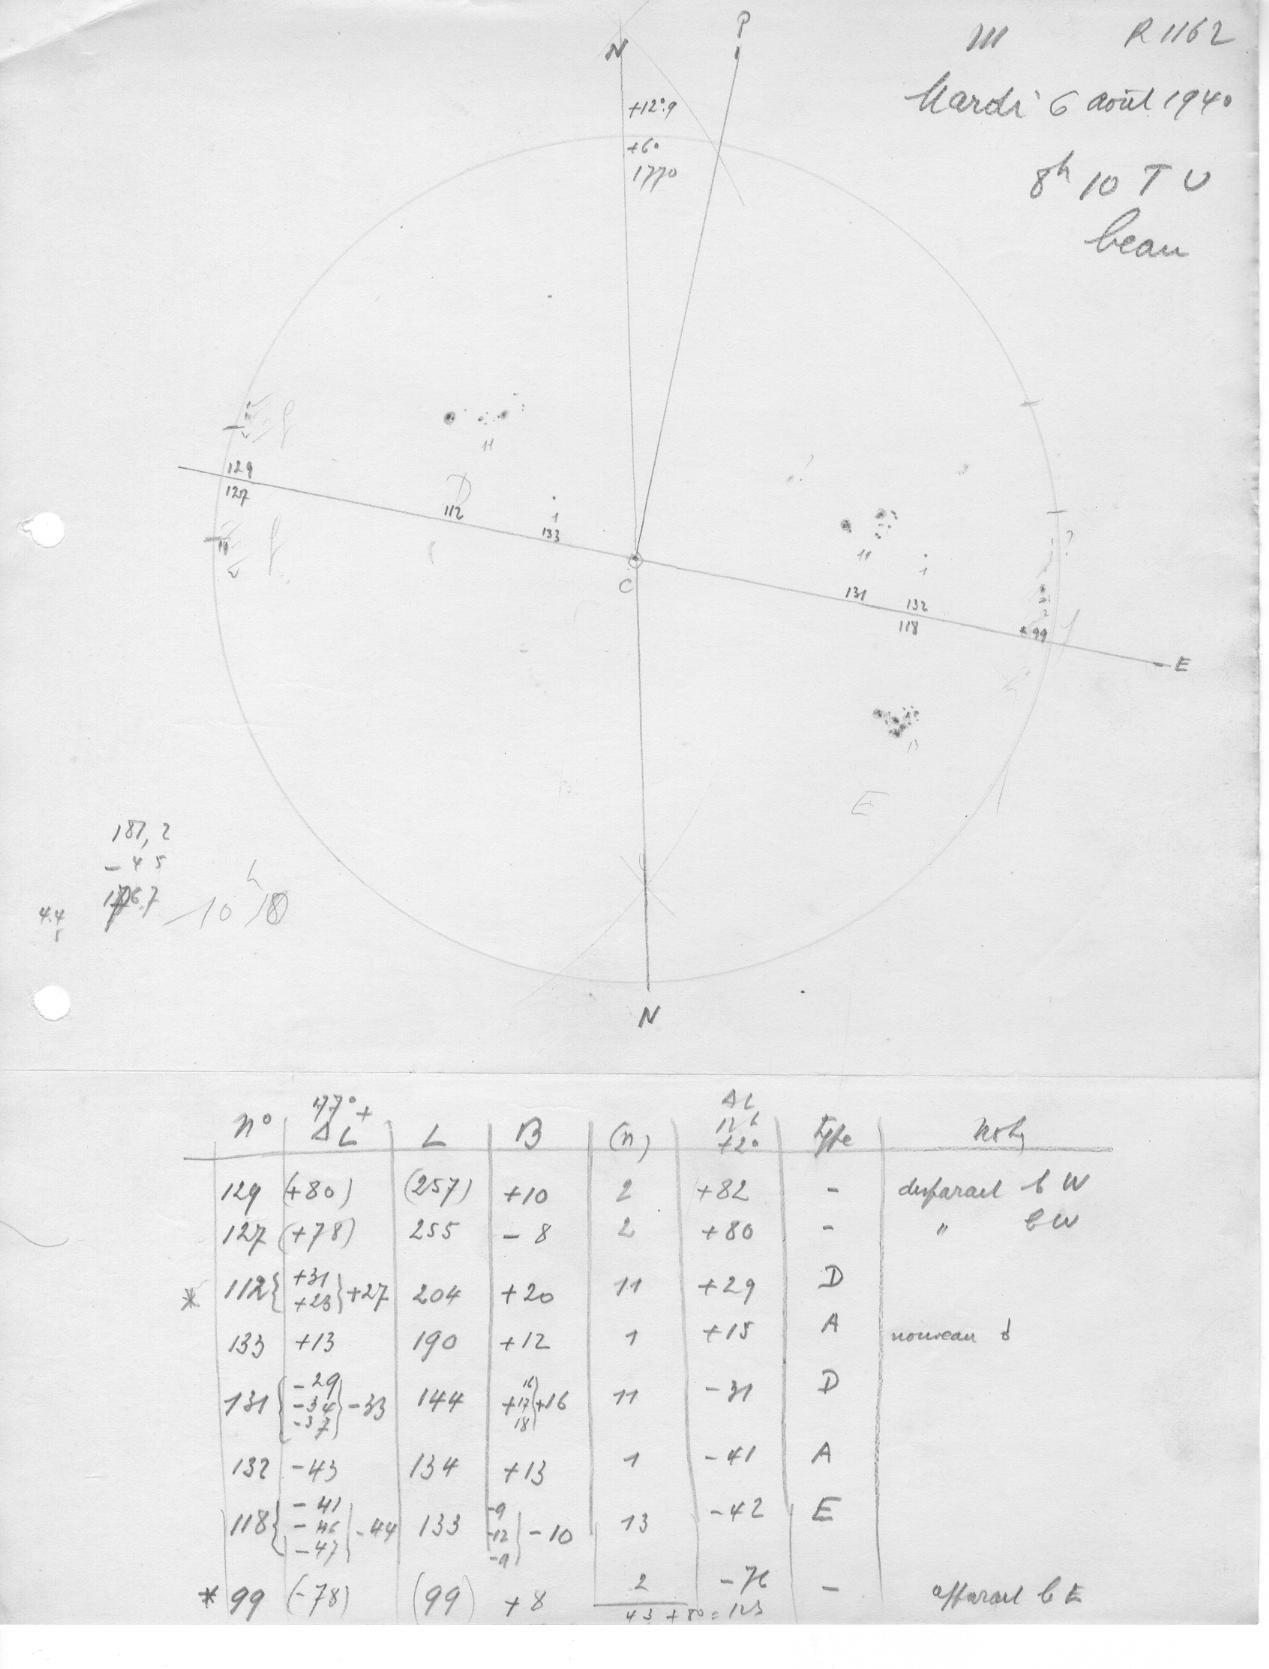 III R 1162
N P
Mardi 6 août 1940
+12°.9
+6°
1770
8h 10 T U
beau
11
129
127
D
112
1
133
C
11
1
131
132
118
2
* 99
E
13
E
N
181,2
- 4 5
176.7
10h 18
4.4
n° 177°+ ΔL L B (n) ΔL +2° type
129 (+80) (257) +10 2 +82 - disparait b W
127 (+78) 255 - 8 2 +80 - " b W
* 112 { +31 +23 } +27 204 +20 11 +29 D
133 +13 190 +12 1 +15 A nouveau
131 { -29 -34 -37 } -33 144 16 +17 18 } +16 11 -31 D
132 -43 134 +13 1 -41 A
118 { -41 -46 -47 } -44 133 -9 -12 -9 } -10 13 -42 E
* 99 (-78) (99) + 8 2 -76 - apparait b E
43 + 80 = 123